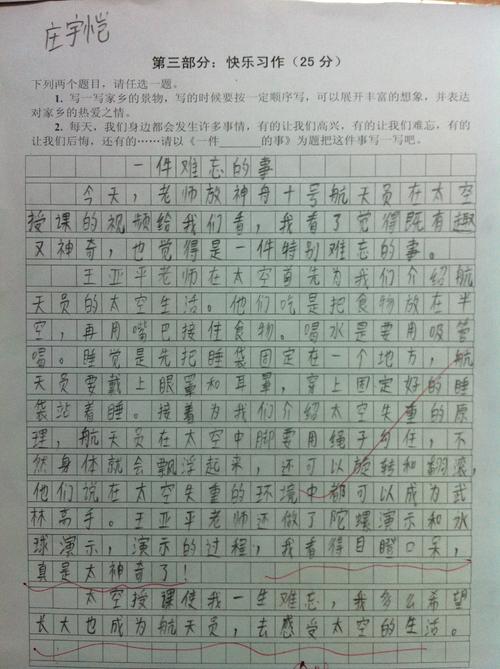 庄宇恺
第三部分：快乐习作（25分）
下列两个题目，请任选一题。
1. 写一写家乡的景物，写的时候要按一定顺序写，可以展开丰富的想象，并表达
对家乡的热爱之情。
2. 每天，我们身边都会发生许多事情，有的让我们高兴，有的让我们难忘，有的
让我们后悔，还有的……请以《一件______的事》为题把这件事写一写吧。
一件难忘的事
今天，老师放神舟十号航天员在太空
授课的视频给我们看，我看了觉得既有趣
又神奇，也觉得是一件特别难忘的事。
王亚平老师在太空首先为我们介绍航
天员的太空生活。他们吃是把食物放在半
空，再用嘴巴接住食物。喝水是要用吸管
喝。睡觉是先把睡袋固定在一个地方，航
天员要戴上眼罩和耳罩，穿上固定好的睡
袋站着睡。接着为我们介绍太空失重的原
理，航天员在太空中脚要用绳子勾住，不
然身体就会飘浮起来，还可以旋转和翻滚，
他们说在太空失重的环境中都可以成为武
林高手。王亚平老师还做了陀螺演示和水
球演示，演示的过程，我看得目瞪口呆，
真是太神奇了！
太空授课使我一生难忘，我多么希望
长大也成为航天员，去感受太空的生活。